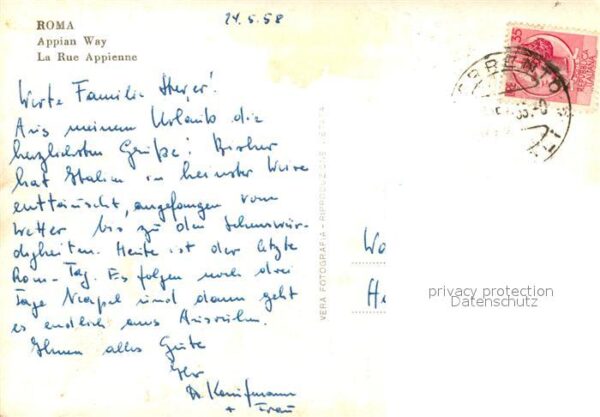 24.5.58
ROMA
Appian Way
La Rue Appienne
Werte Familie
Aus meinem Urlaub die
herzlichsten Grüße! Bisher
hat Italien in keinster Weise
enttäuscht, angefangen vom
Wetter bis zu den Sehenswür-
digkeiten. Heute ist der letzte
Rom-Tag. Es folgen noch drei
Tage Neapel und dann geht
es endlich ans Ausruhn.
Ihnen alles Gute
Ihr
Kaufmann
+ Frau
VERA FOTOGRAFIA - RIPRODUZIONE VIETATA
35
REPUBBLICA
ITALIANA
privacy protection
Datenschutz